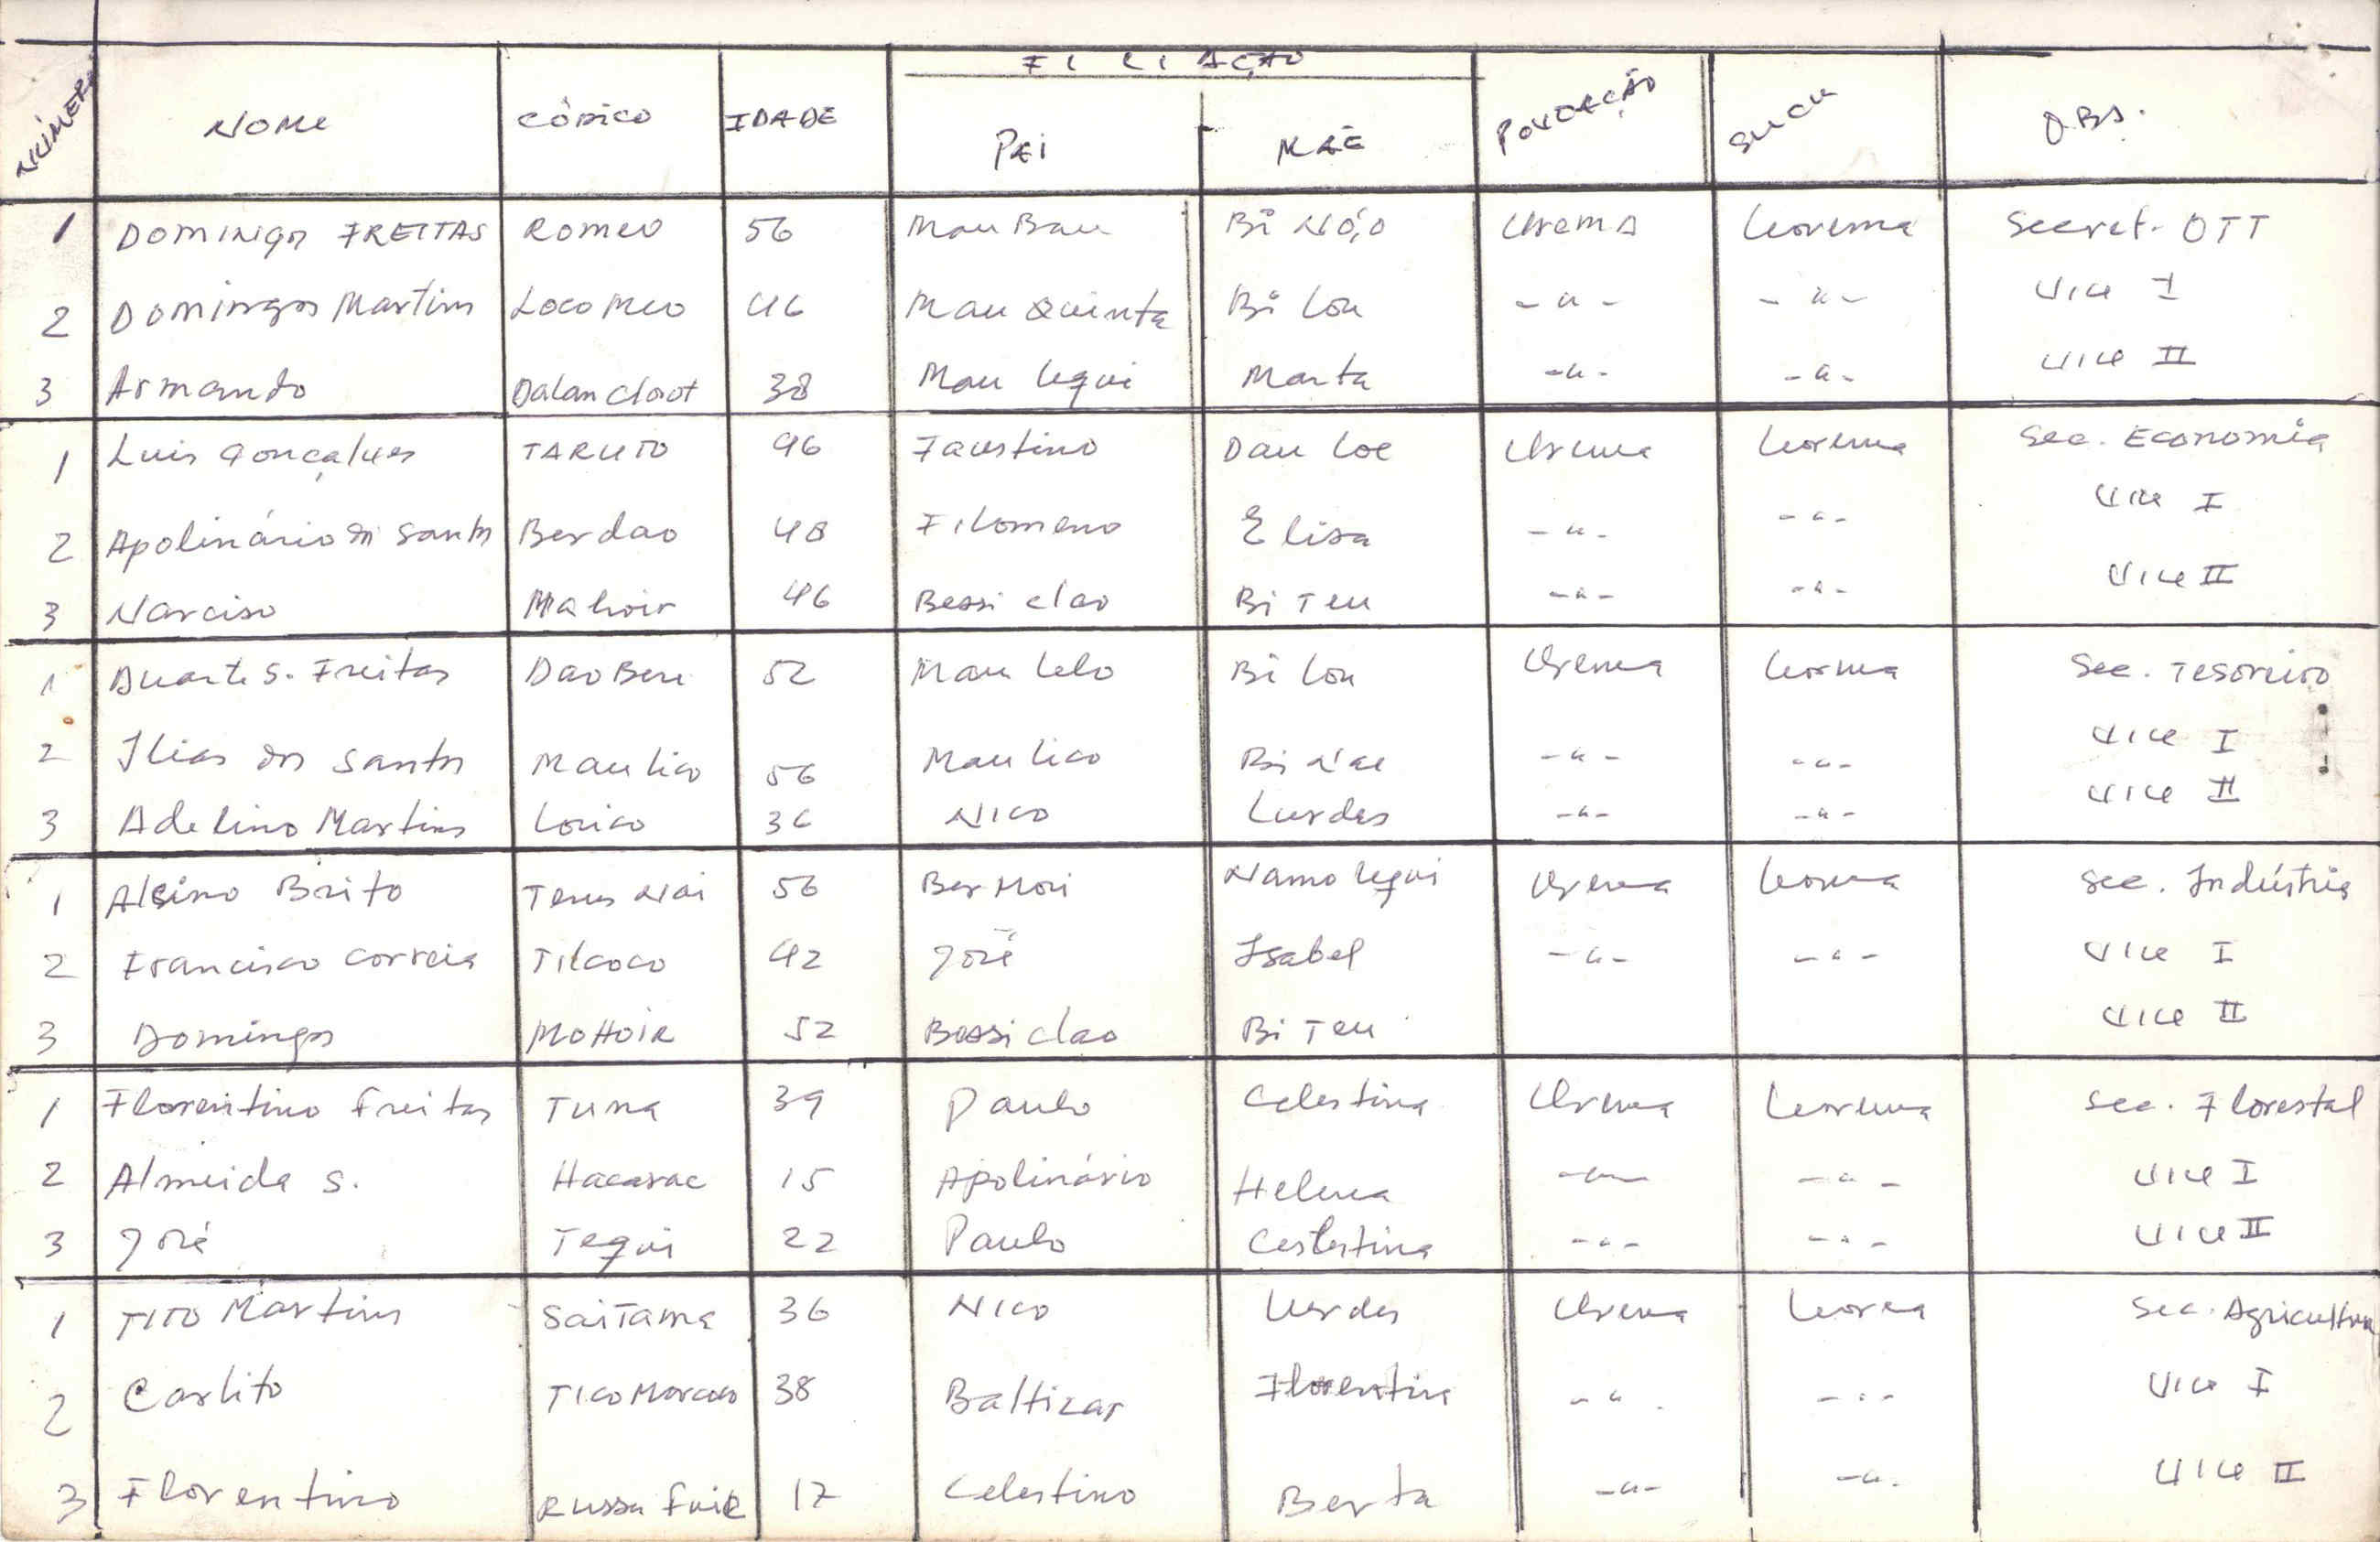 FILIAÇÃO
NÚMERO NOME CÓDICO IDADE PAI MÃE POVOAÇÃO SUCU OBS.
1 DOMINGOS FREITAS ROMEO 56 Mau Bau Bi Nó,o UremA Leorema Secret. OTT
2 Domingos Martins LOCO MEO 46 Mau Quinta Bi Lou -"- -"- Vice I
3 Armando Dalan cloot 38 Mau Lequi Marta -"- -"- Vice II
1 Luis Gonçalves TARUTO 46 Faustino Dau Loe Urema Leorema Sec. Economia
2 Apolinário dos Santos Berdao 48 Filomeno Elisa -"- -"- Vice I
3 Narciso Mahoir 46 Bessi clao Bi Teu -"- -"- Vice II
1 Duarte S. Freitas Dao Bere 52 Mau Lelo Bi Lou Urema Leorma Sec. Tesoreiro
2 Ilias dos Santos Mau Lico 56 Mau Lico Bi -"- -"- Vice I
3 Adelino Martins Lorico 36 NICO Lurdes -"- -"- Vice II
1 Alsino Brito Nai 56 Ber Mori Namo Lequi Urema Leorma Sec. Indústria
2 Francisco Correia TILCOCO 42 José Isabel -"- -"- Vice I
3 Domingos MOHOIR 52 Bossi clao Bi Teu Vice II
1 Florentino Freitas Tuna 39 Paulo Celestina Urema Leorema Sec. Florestal
2 Almeida S. Hacarac 15 Apolinário Helena -"- -"- Vice I
3 José Tequi 22 Paulo Celestina -"- -"- Vice II
1 TITO Martins SaiTama 36 NICO Lurdes Urema Leorea Sec. Agricultura
2 Carlito TICO 38 Baltizar Florentina -"- -"- Vice I
3 Florentino Russa Fuik 17 Celestino Berta -"- -"- Vice II